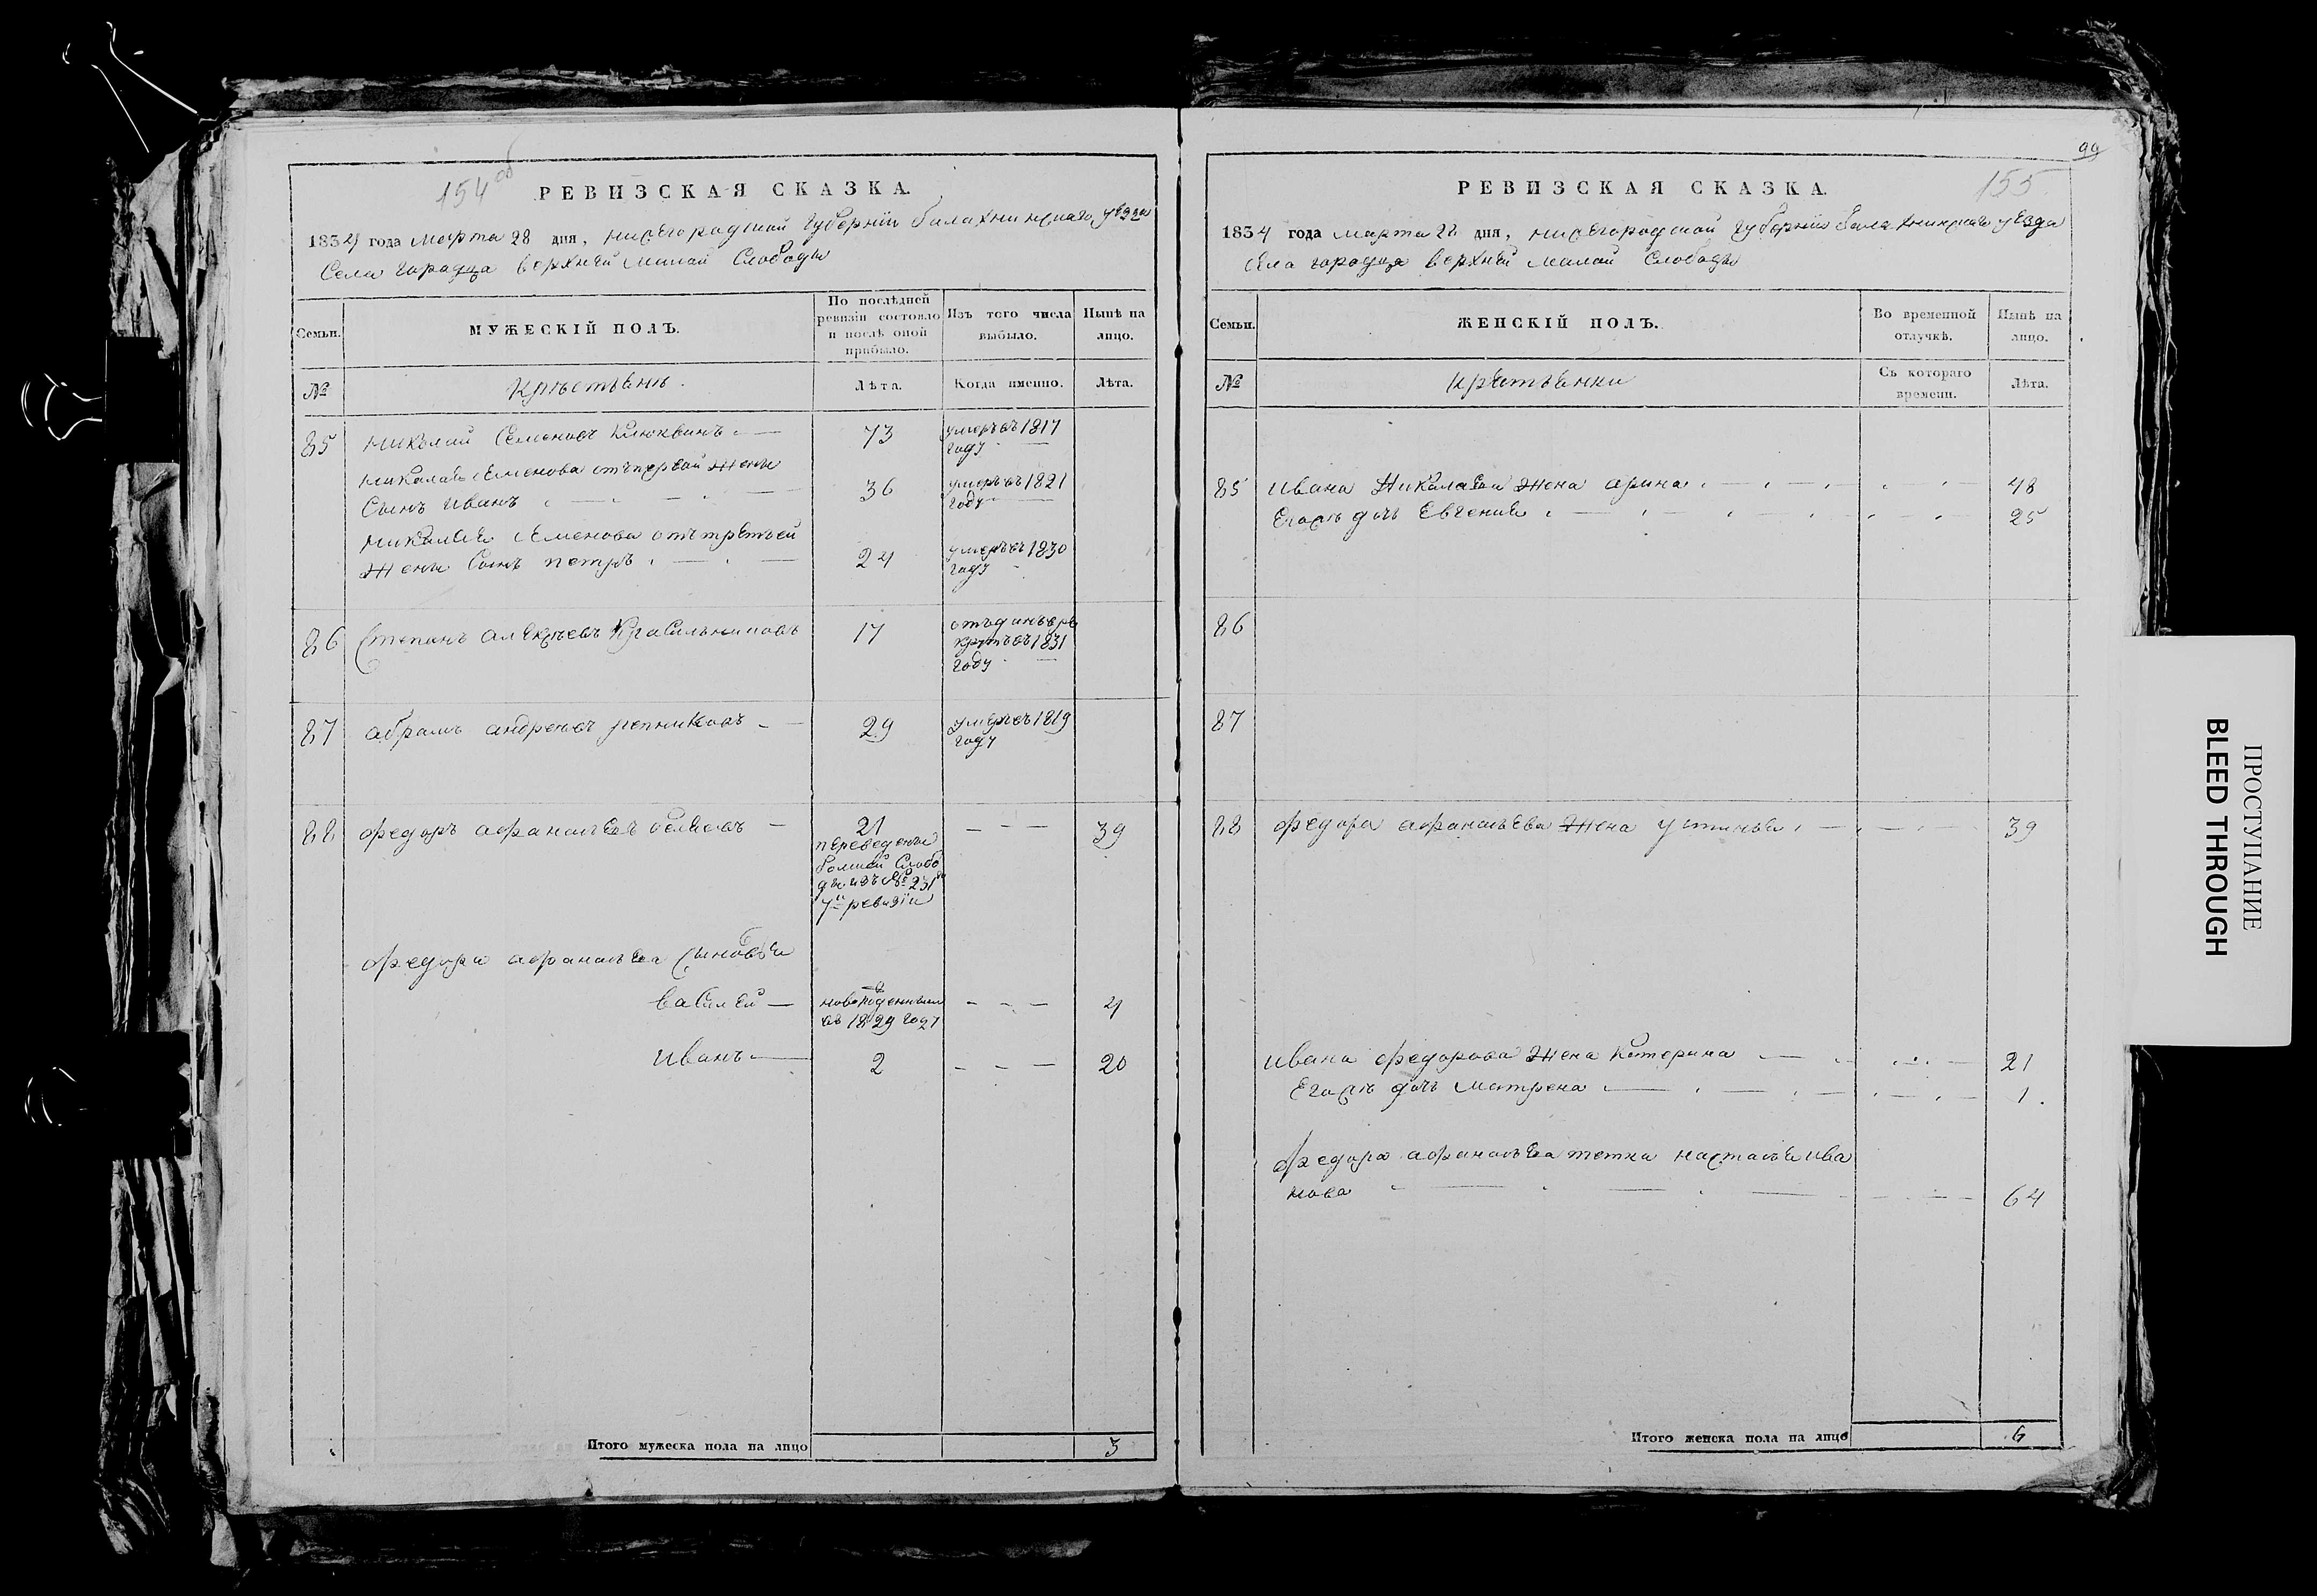 154 об
РЕВИЗСКАЯ СКАЗКА.
1834 года марта 28 дня, нижегородской губернїи балахнинскаго уезда
села городца верхней малой слободы
Семьи.
МУЖЕСКІЙ ПОЛЪ.
По послѣдней ревизіи состояло и послѣ оной прибыло.
Изъ того числа выбыло.
Нынѣ на лицо.
№
Крестьяне
Лѣта.
Когда именно.
Лѣта.
85 николай Семеновъ Клюквинъ 73 умеръ въ 1817
году
николая Семенова отъ первой жены
Сынъ иванъ 36 умеръ въ 1821
году
николая Семенова отъ третьей
жены Сынъ петръ 24 умеръ въ 1830
году
86 Степанъ алексеевъ Красильниковъ 17 отъданъ въ ре
круты въ 1831
году
87 абрамъ андреевъ репниковъ 29 умеръ въ 1819
году
88 федоръ афанасьевъ 21 39
переведены
большей Слобо
ды изъ № 231
7й ревизїи
федора афанасьева сыновья
василей новорожденный 4
въ 1829 году
иванъ 2 20
Итого мужеска пола на лицо 3
99
155
РЕВИЗСКАЯ СКАЗКА.
1834 года марта 28 дня, нижегородской губернїи балахнинскаго уезда
села городца верхней малой слободы
Семьи.
ЖЕНСКІЙ ПОЛЪ.
Во временной отлучкѣ.
Нынѣ на лицо.
№
крестьянки
Съ котораго времени.
Лѣта.
85 ивана николаева жена арина 48
Егожъ дочь Евгения 25
86
87
88 федора афанасьева жена устинья 39
ивана федорова жена катерина 21
Егожъ дочь матрена 1
федора афанасьева тетка настасья ива
нова 64
Итого женска пола на лицо 6
ПРОСТУПАНИЕ
BLEED THROUGH